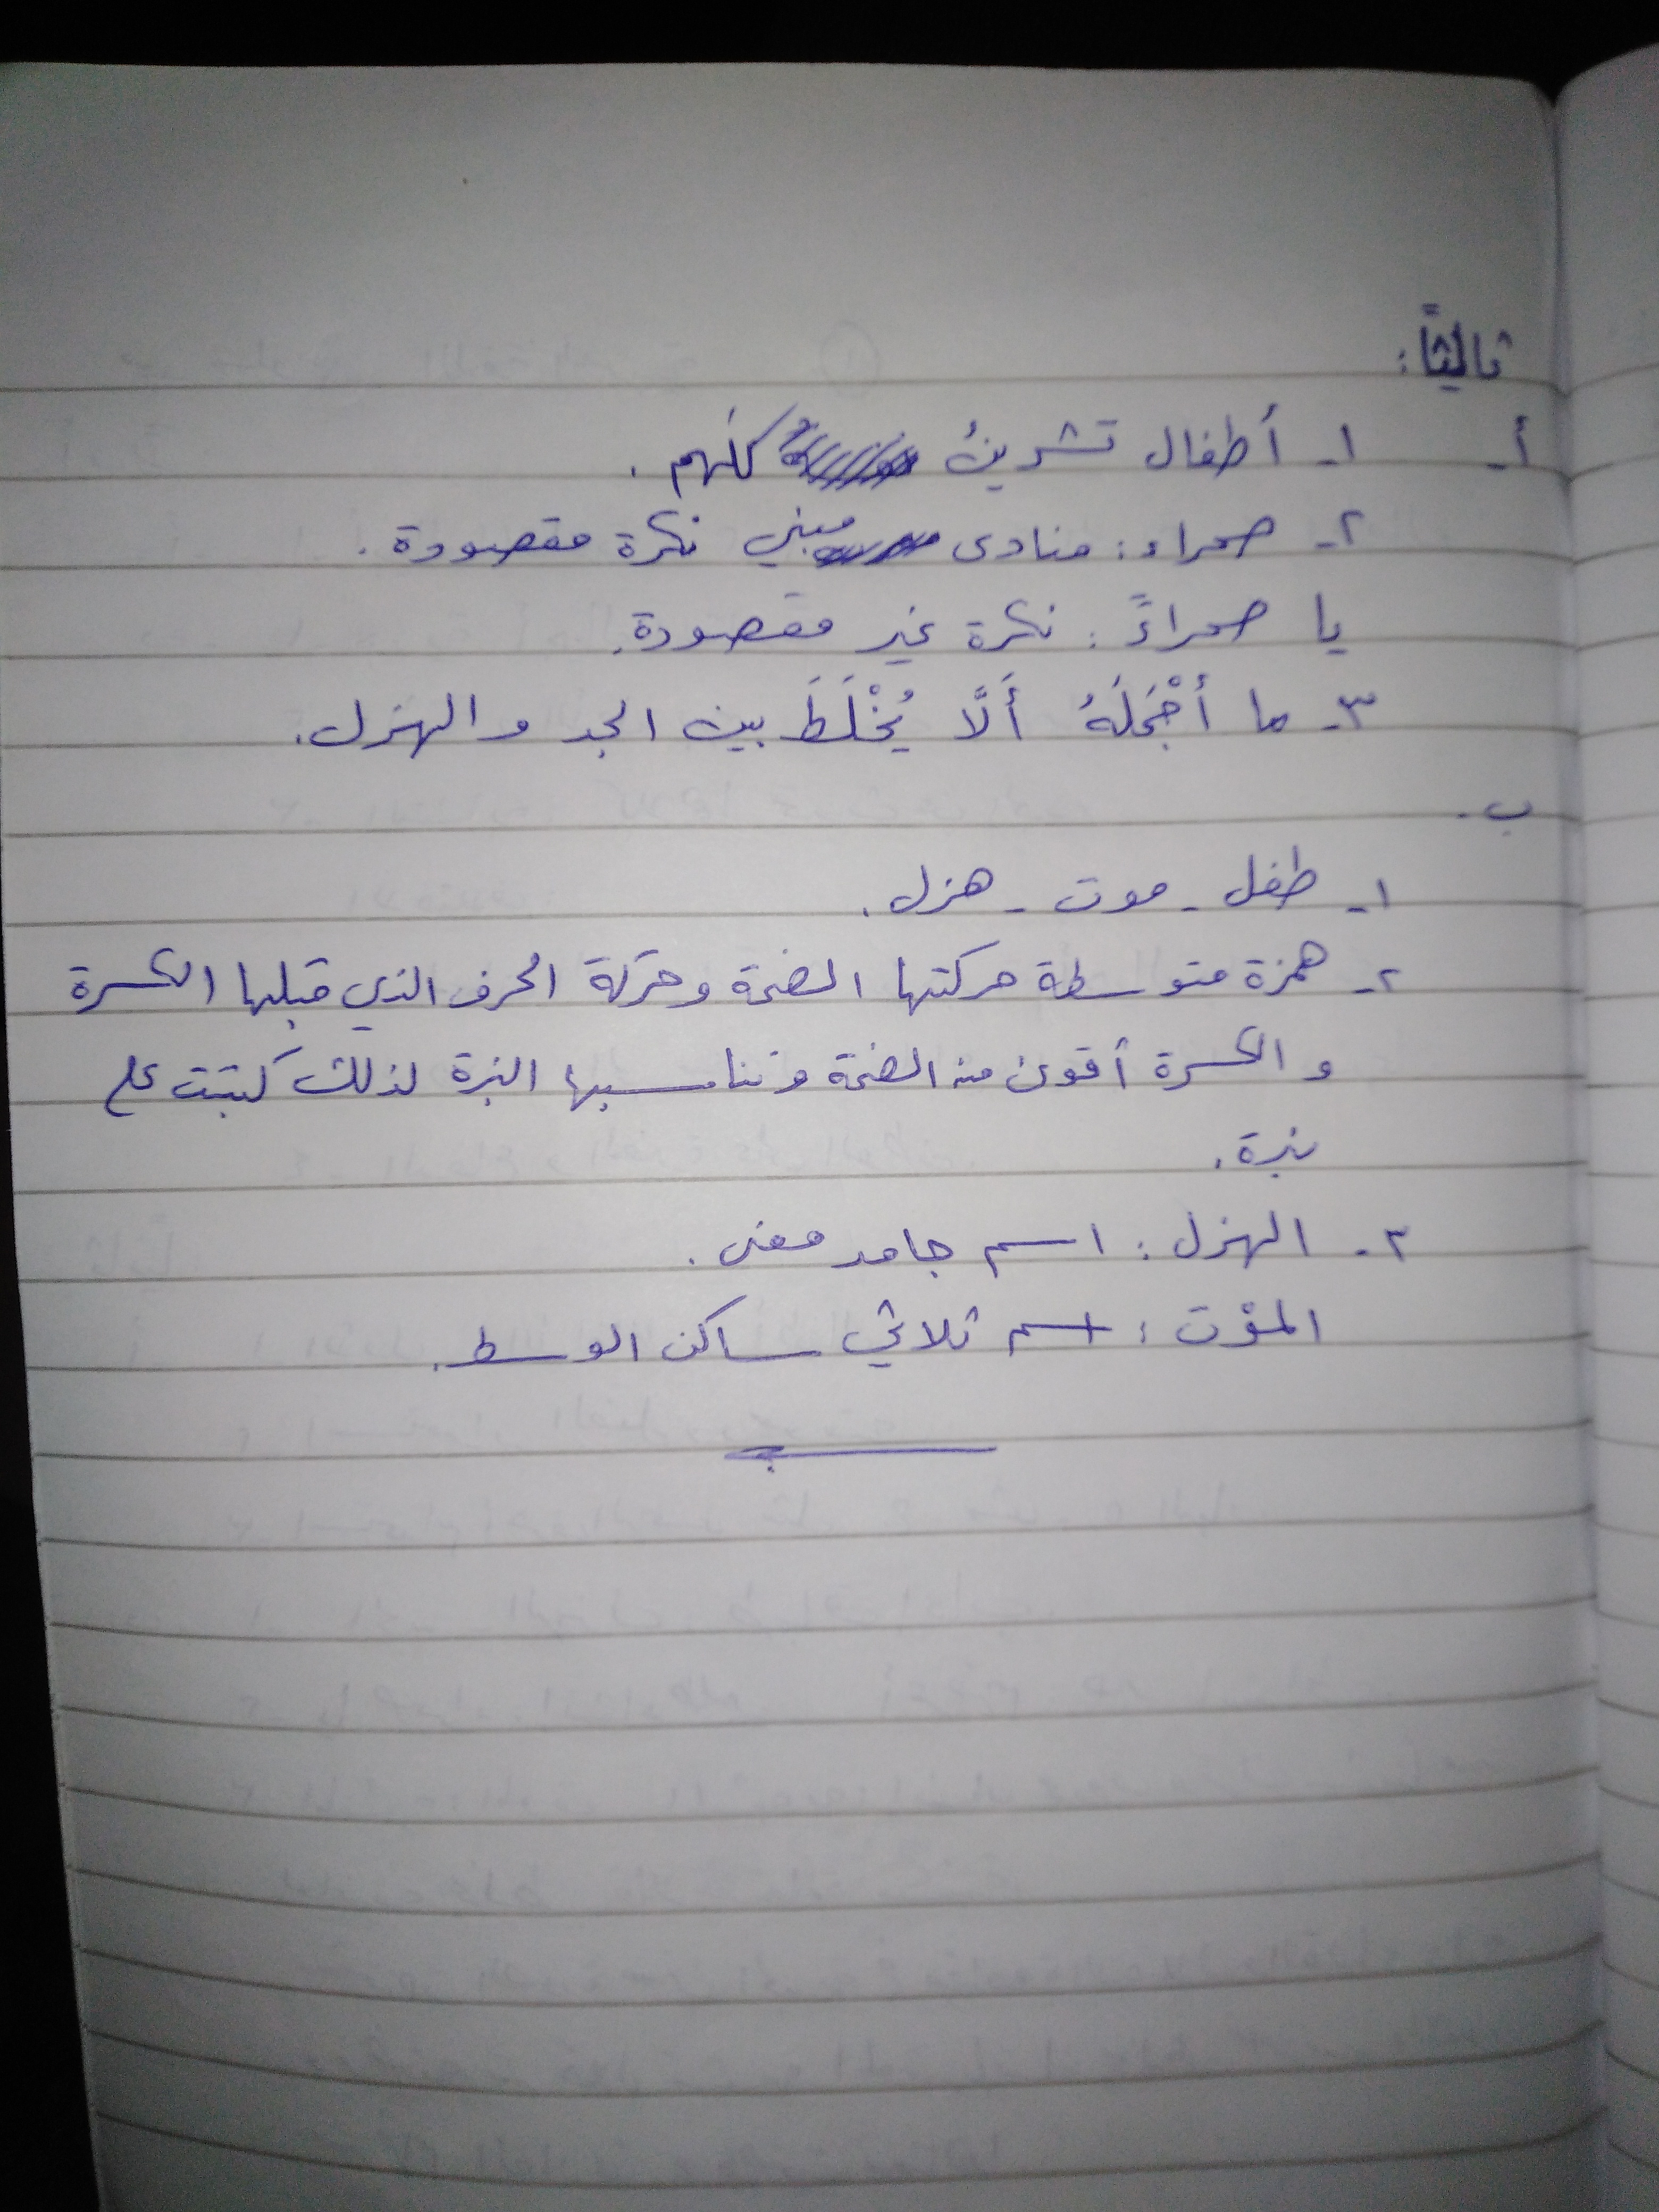 ثالثاً:
أ- ١- أطفال تشرين كلهم.
٢- صحراء: منادى مبني نكرة مقصودة.
يا صحراءً: نكرة غير مقصودة.
٣- ما أجْمَلَهُ أَلَّا يُخْلَطَ بين الجد والهزل.
ب-
١- طفل - موت - هزل.
٢- همزة متوسطة حركتها الضمة وحركة الحرف الذي قبلها الكسرة
والكسرة أقوى من الضمة وتناسبها النبرة لذلك كتبت على
نبرة.
٣- الهزل: اسم جامد معنى.
الموْت: اسم ثلاثي ساكن الوسط.